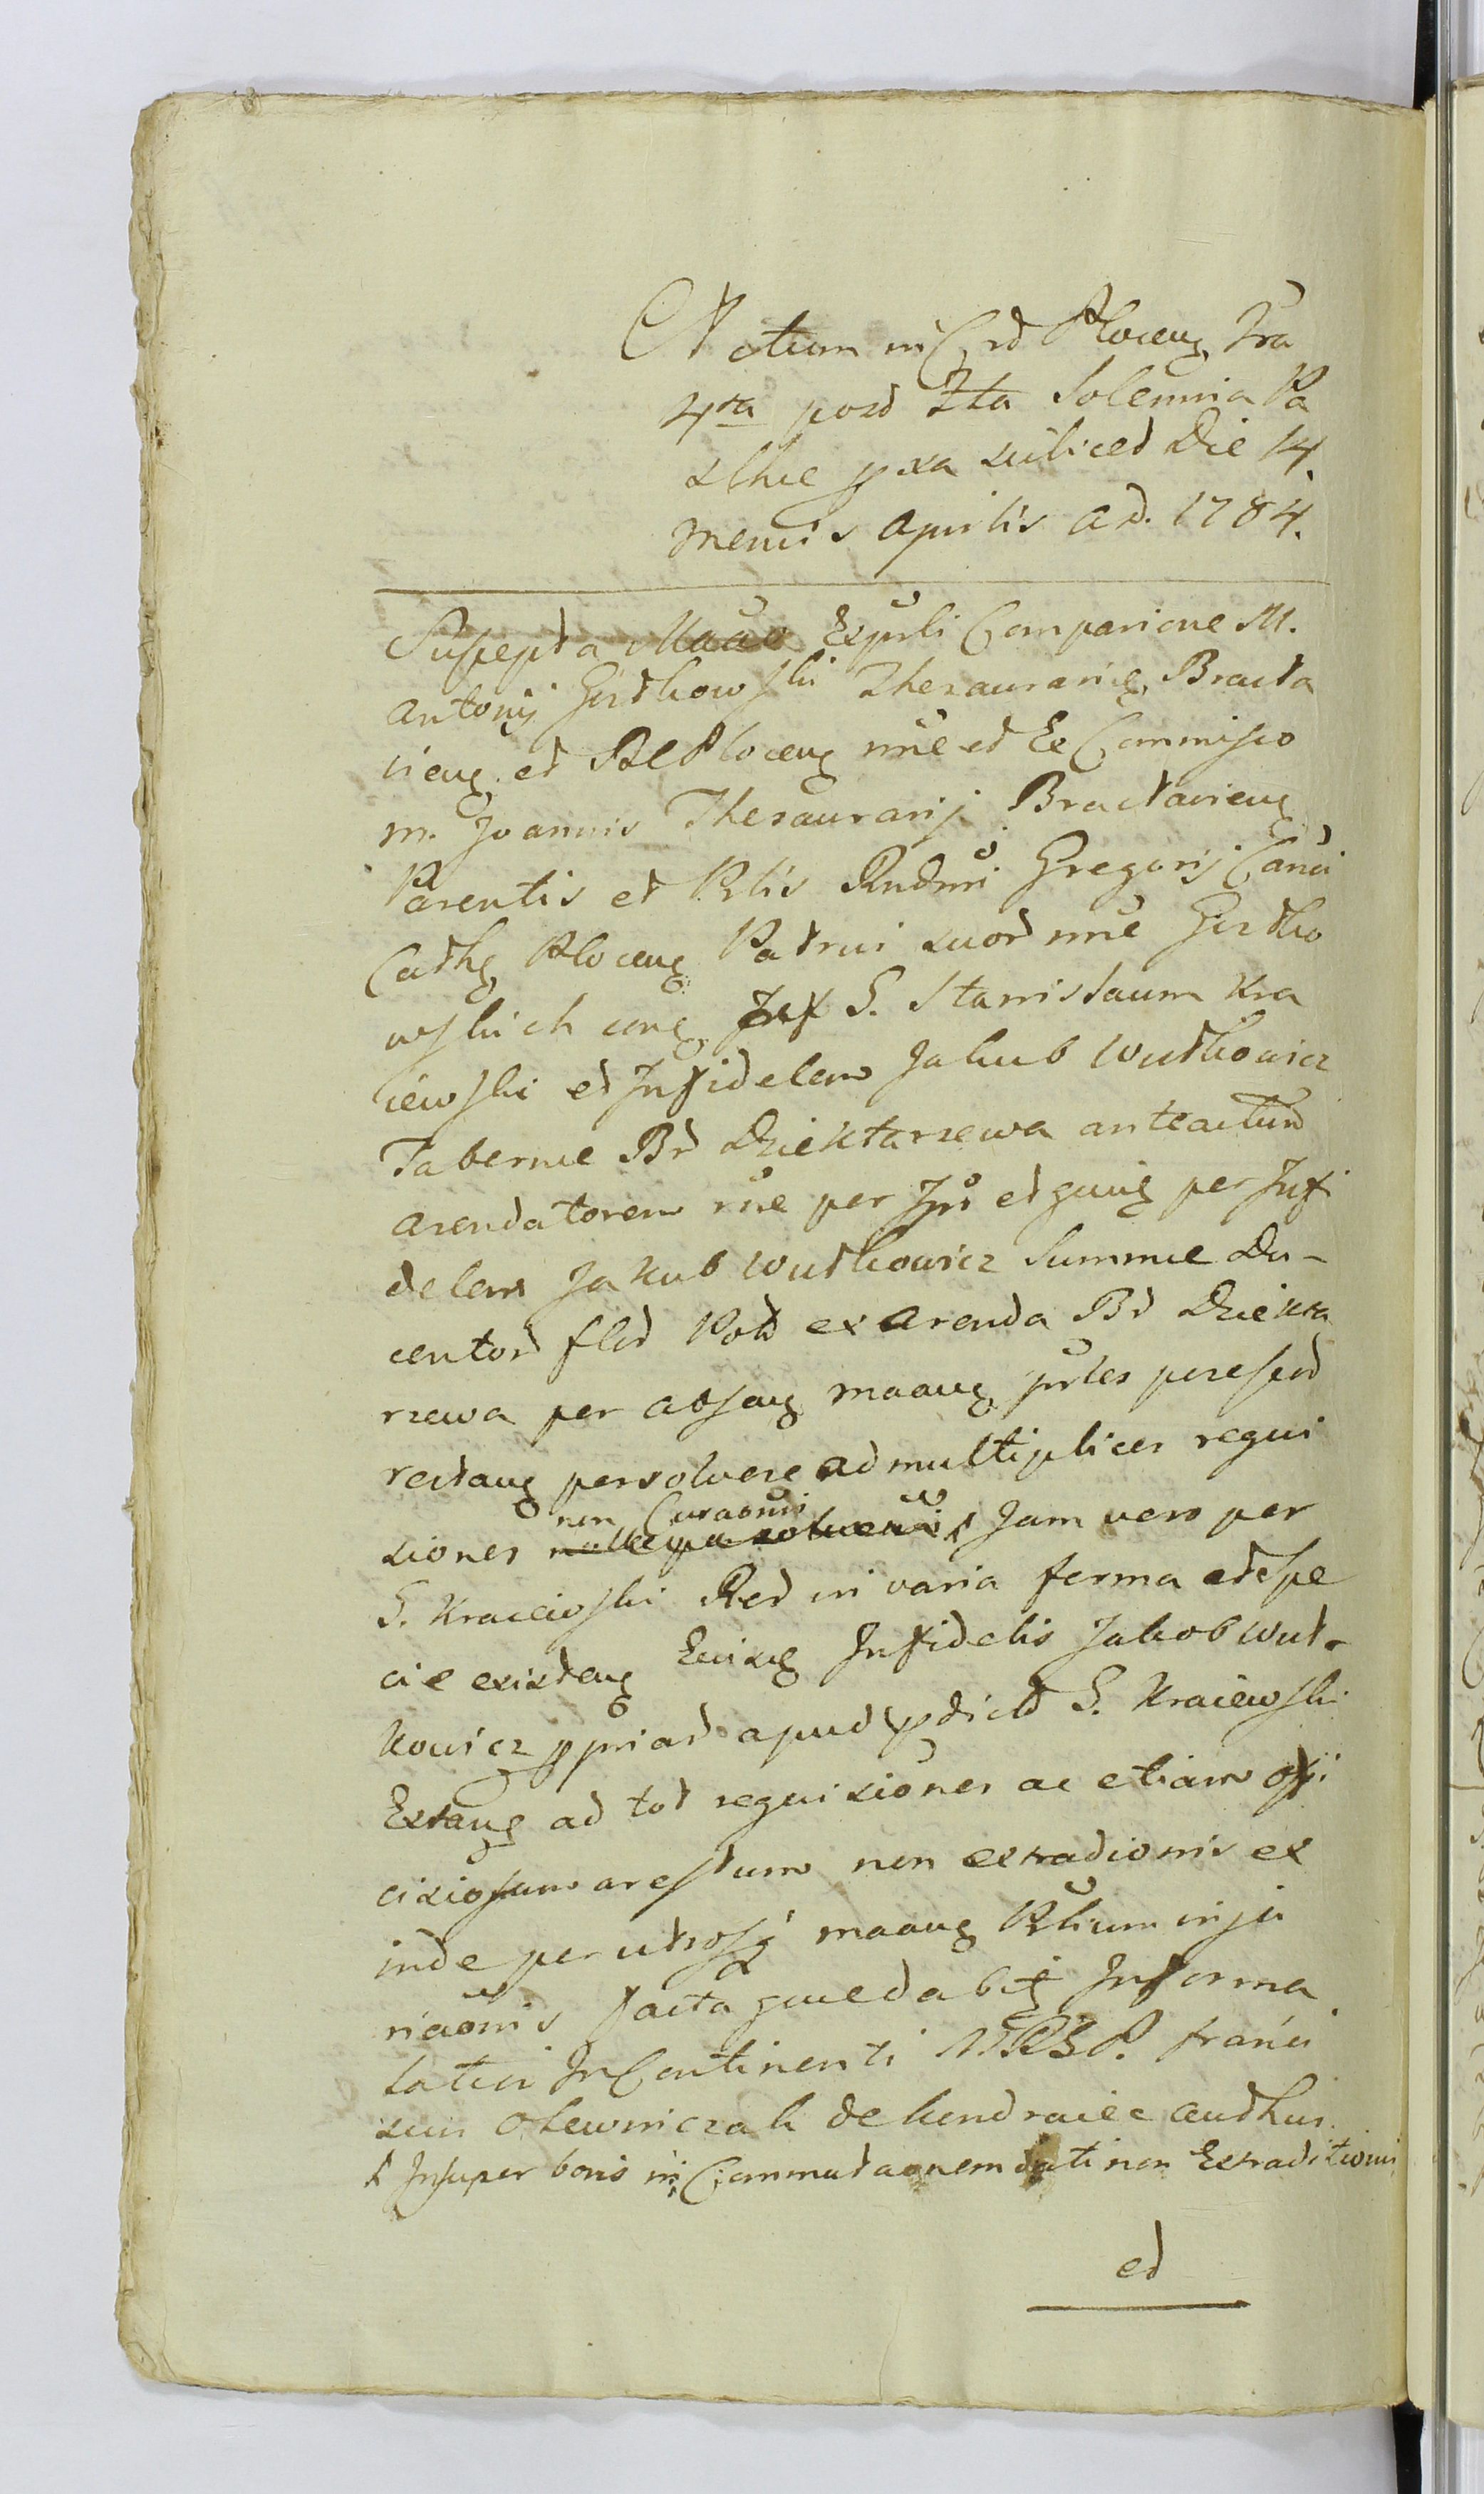 Actum in C rd Plocen Fra
4ta post Fta Solennia Pa
schae pxa scilicet Die 14.
Mensis Aprilis A D. 1784.
Suscepta Maão Exprli Comparicne M.
Antonij Girtkowski Thesauraric Bracta
vien et RC Plocen nne et Eo Commisso
M. Joannis Thesaurarij Bractavien
Parentis et Plis Rndmi Gregorij Canci
Cathg Plocen Patrui suor nne Girtko
wskich cong Inf G. Stanislaum Kra
iewski et Infidelem Jakub Wutkowicz
Tabernae Br Dziektarzewa anteactum
arendatorem rne per Ips et quig per Infi
delem Jakub Wutkowicz Summae Du-
centor flor Pol ex Arenda Br Dziekta
rzewa per absen maang prtes praefat
restang persolvere ad multiplices requi
siones non Curaonis Jam vero per
G. Kraiewski Red in varia forma et spe
cie existeng Eiusg Infidelis Jakob Wut-
kowicz ppriar apud pdict G. Kraiewski
Extang ad tot requisiones ac etiam offi
ciosum arestum non extradionis ex
inde per utrosq maang Plium inju
riaonis facta quaedabig Informa
tatus In Continenti NRSP. franci
scus Olewniczak de kendraiec authus
Insuper boris in Commutaonem dati non Extraditionis
et